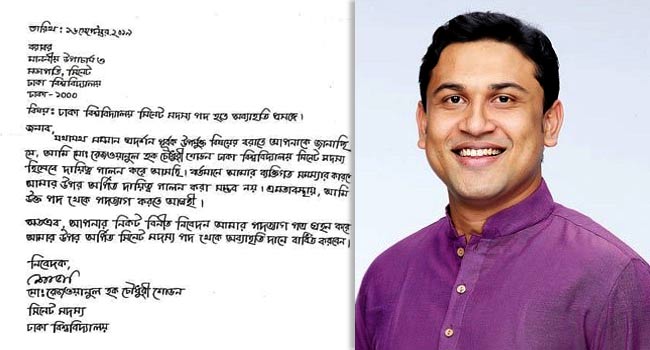 তারিখ: ১৬ সেপ্টেম্বর, ২০১৯
বরাবর
মাননীয় উপাচার্য ও
সভাপতি, সিনেট
ঢাকা বিশ্ববিদ্যালয়
ঢাকা - ১০০০
বিষয়: ঢাকা বিশ্ববিদ্যালয় সিনেট সদস্য পদ হতে অব্যাহতি প্রসঙ্গে।
জনাব,
যথাযথ সম্মান প্রদর্শন পূর্বক উপর্যুক্ত বিষয়ের বরাতে আপনাকে জানাচ্ছি
যে, আমি মো: রেজওয়ানুল হক চৌধুরী শোভন ঢাকা বিশ্ববিদ্যালয় সিনেট সদস্য
হিসেবে দায়িত্ব পালন করে আসছি। বর্তমানে আমার ব্যক্তিগত সমস্যার কারণে
আমার উপর অর্পিত দায়িত্ব পালন করা সম্ভব নয়। এমতাবস্থায়, আমি
উক্ত পদ থেকে পদত্যাগ করতে আগ্রহী।
অতএব, আপনার নিকট বিনীত নিবেদন আমার পদত্যাগ পত্র গ্রহন করে
আমার উপর অর্পিত সিনেট সদস্য পদ থেকে অব্যাহতি দানে বাধিত করবেন।
নিবেদক,
মো: রেজওয়ানুল হক চৌধুরী শোভন
সিনেট সদস্য
ঢাকা বিশ্ববিদ্যালয়